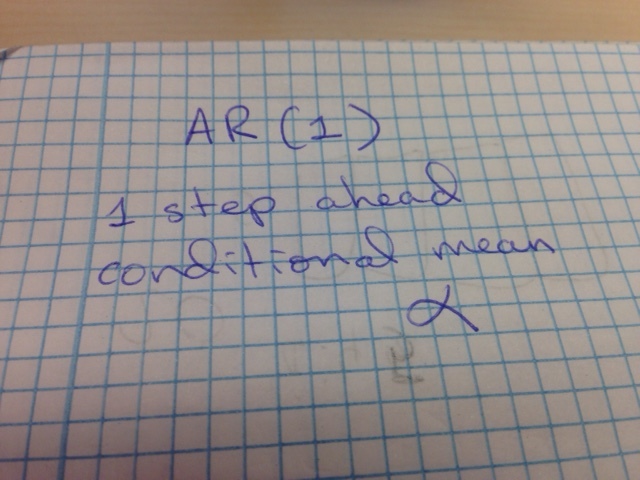 AR (1)
1 step ahead
conditional mean
α